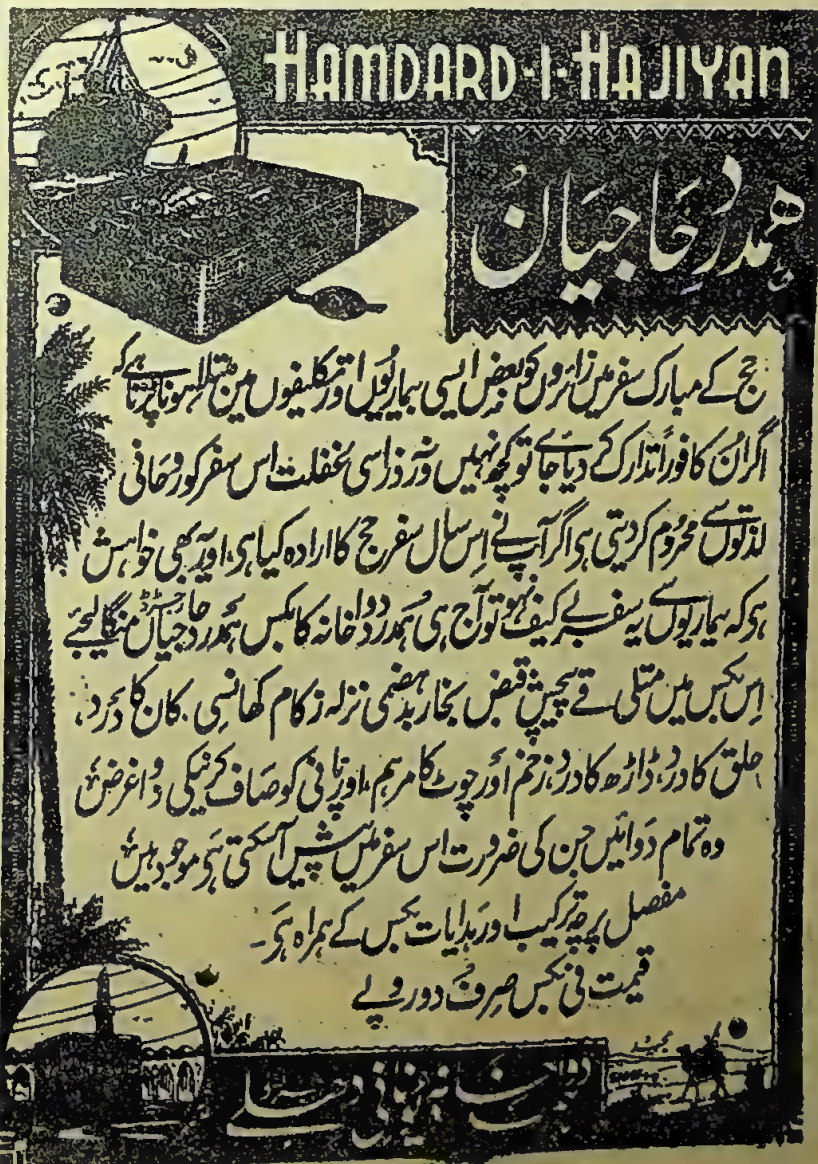 HAMDARD-I-HAJIYAN
ہمدردِ حاجیاں
حج کے مبارک سفر میں زائروں کو بعض ایسی بیماریوں اور تکلیفوں میں مبتلا ہونا پڑتا ہے کہ
اگر ان کا فوراً تدارک کر دیا جائے تو کچھ نہیں ورنہ ذرا سی غفلت اس سفر کو روحانی
لذتوں سے محروم کر دیتی ہی اگر آپ نے اس سال سفر حج کا ارادہ کیا ہی، اور یہ بھی خواہش
ہو کہ بیماریوں سے یہ سفر بے کیف نہو تو آج ہی ہمدرد دواخانہ کا بکس ہمدرد حاجیاں رجسٹرڈ منگا لیجئے
اس بکس میں متلی قے پیچش قبض بخار بدہضمی نزلہ زکام کھانسی۔ کان کا درد،
حلق کا درد، ڈاڑھ کا درد، زخم اور چوٹ کا مرہم، اور پانی کو صاف کرنیکی دوا غرض
وہ تمام دوائیں جن کی ضرورت اس سفر میں پیش آسکتی ہی موجود ہیں
مفصل پرچہ ترکیب اور ہدایات بکس کے ہمراہ ہے۔
قیمت فی بکس صرف دو روپے
دواخانہ یونانی دہلی